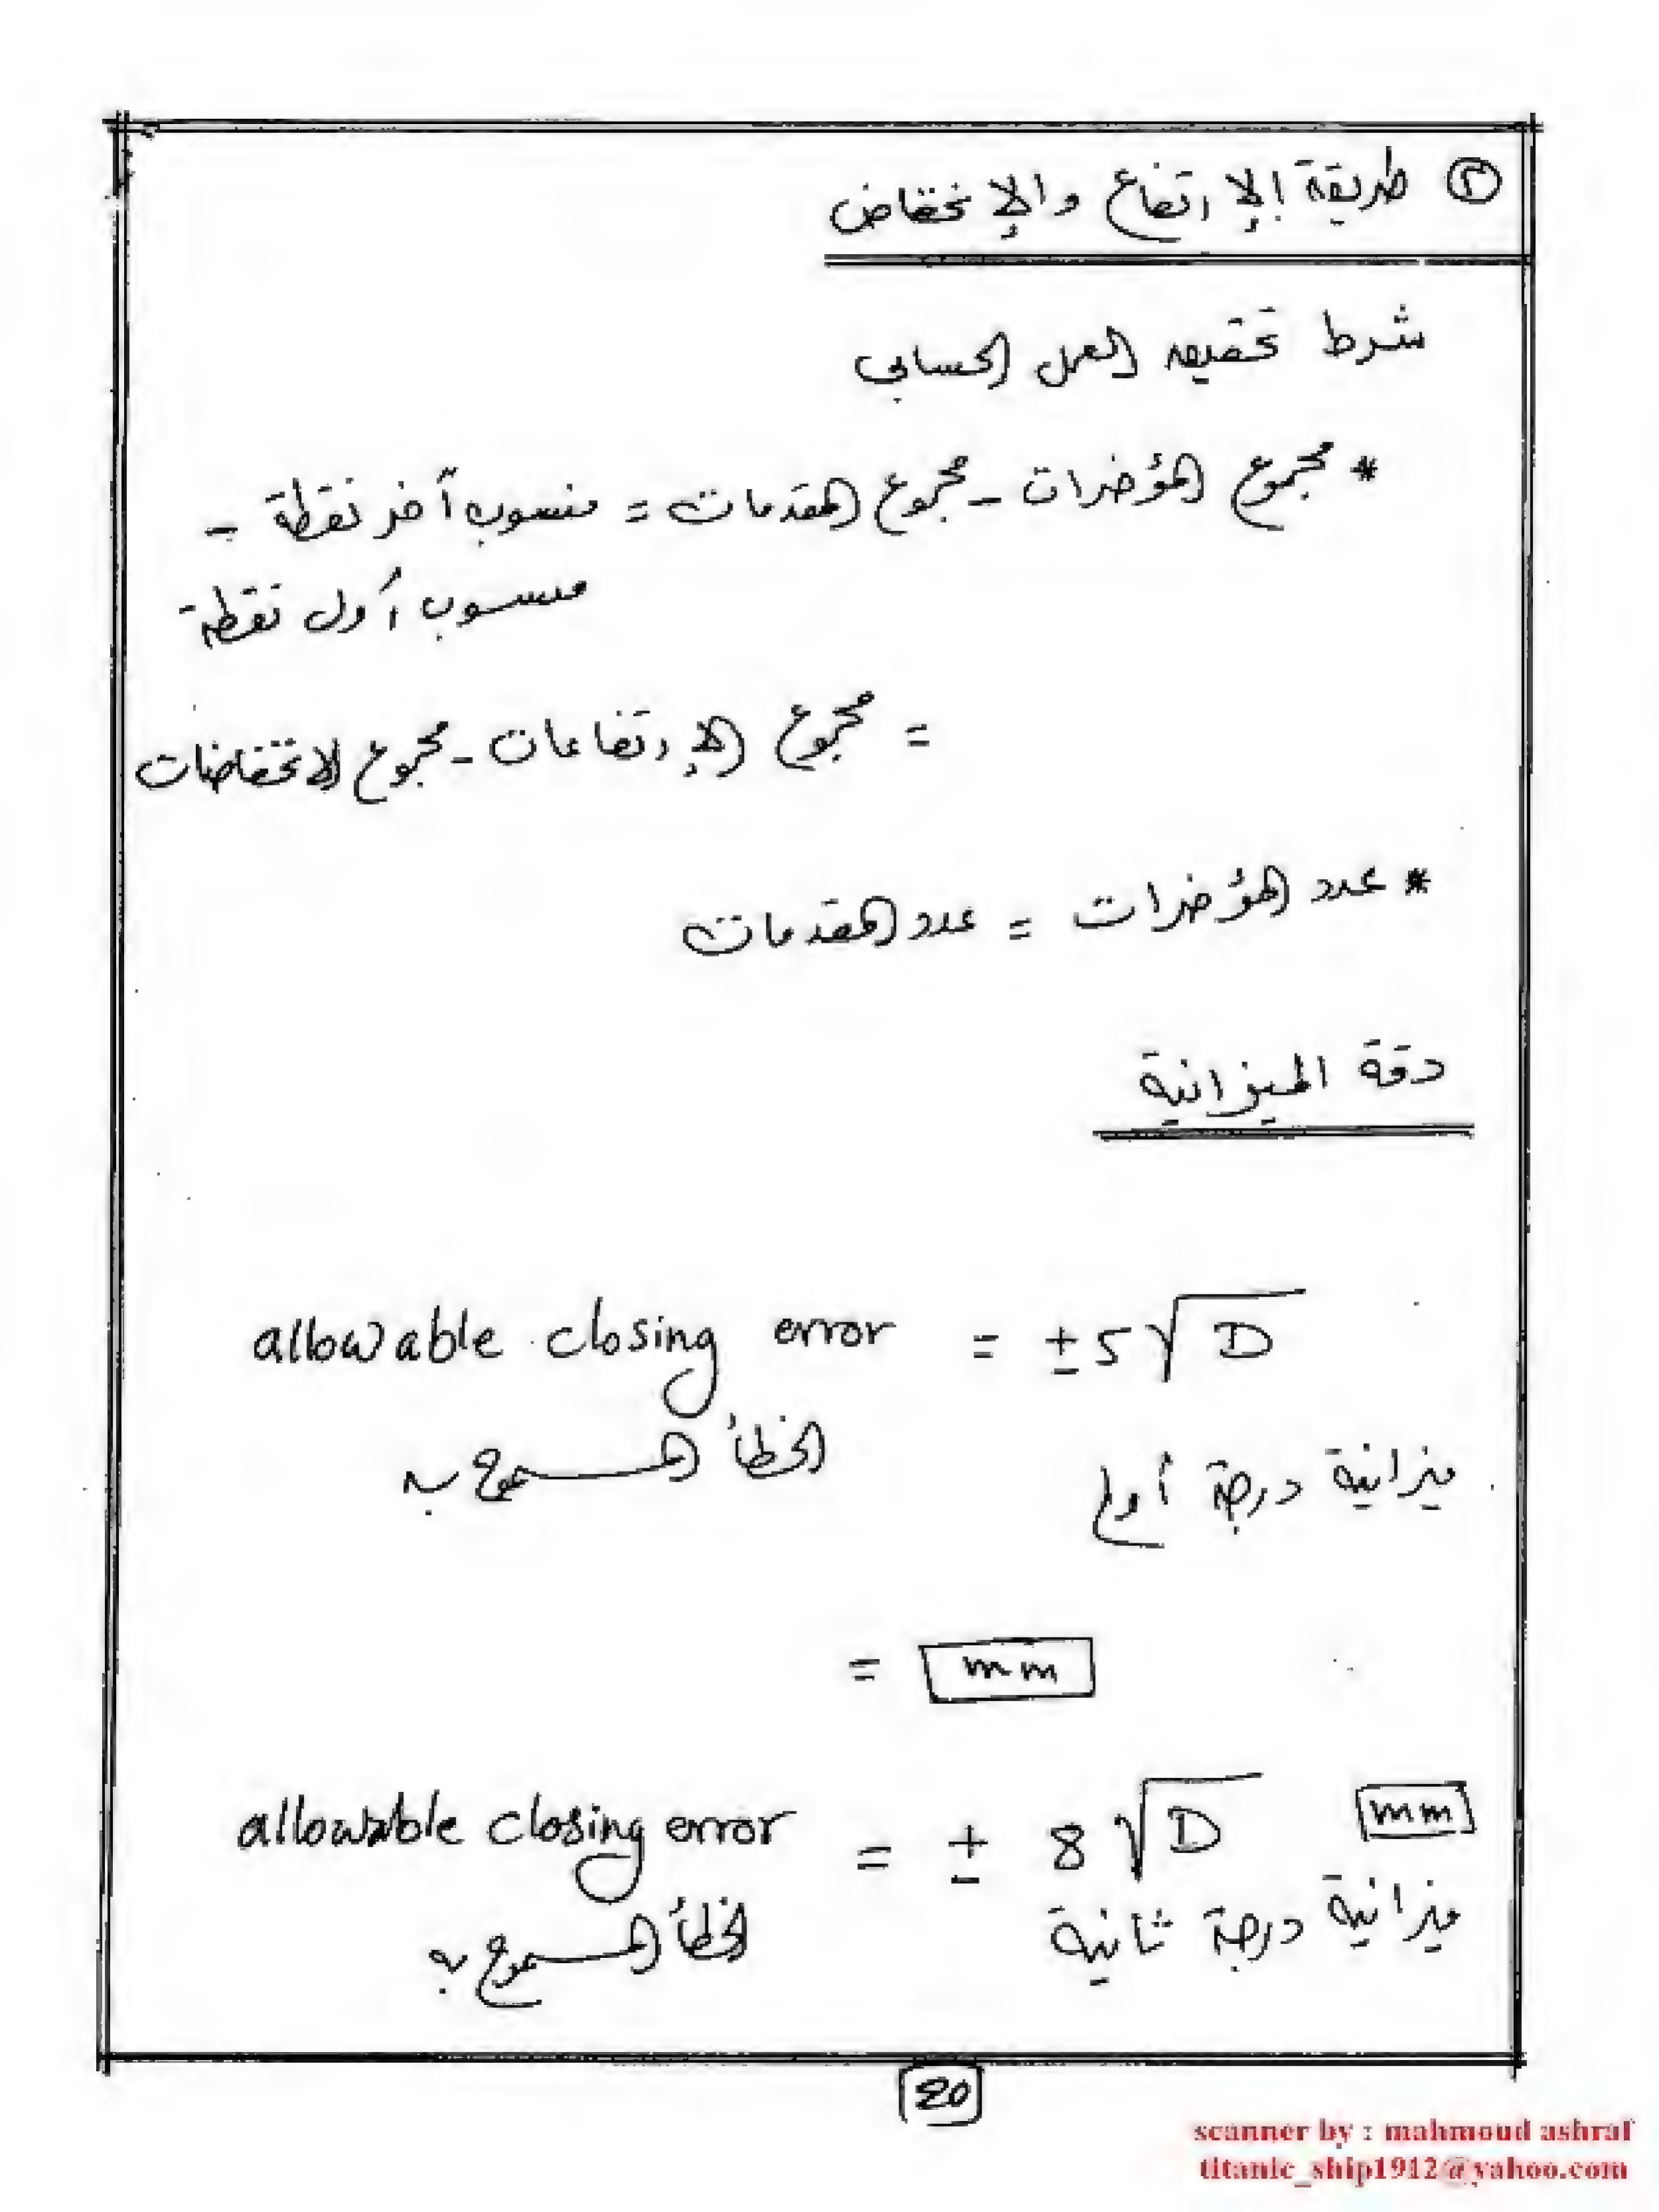 ② طريقة الإرتفاع والإنخفاض
شرط تحقيق العمل الحسابي
* مجموع المؤخرات - مجموع المقدمات = منسوب آخر نقطة -
منسوب أول نقطة
= مجموع الإرتفاعات - مجموع الانخفاضات
* عدد المؤخرات = عدد المقدمات
دقة الميزانية
allowable closing error = ±5√D
الخطأ المسموح به
ميزانية درجة أولى
= mm
allowable closing error = ± 8√D mm
الخطأ المسموح به
ميزانية درجة ثانية
scanner by : mahmoud ashraf
titanic_ship1912@yahoo.com